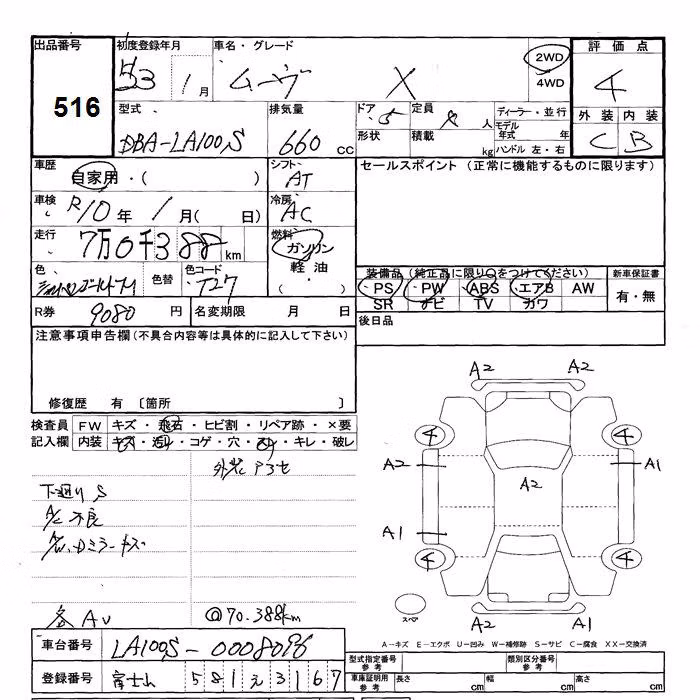 出品番号 初度登録年月 車名・グレード 評価点
516 1月 ムーヴ X 2WD 4
4WD
型式 排気量 ドア 定員 ディーラー・並行 外装 内装
DBA-LA100S 660 CC 5 人 モデル年式 年 C B
形状 積載 kg ハンドル 左・右
車歴 自家用・( ) シフト AT セールスポイント (正常に機能するものに限ります)
車検 R10年 1月( 日) 冷房 AC
走行 7万0千388km 燃料 ガソリン
軽油
( )
色 色替 色コード T27
装備品(純正品に限り○をつけてください) 新車保証書
PS PW ABS エアB AW 有・無
SR ナビ TV カワ
R券 9080 円 名変期限 月 日 後日品
注意事項申告欄(不具合内容等は具体的に記入して下さい)
修復歴 有 〔箇所 〕
検査員 FW キズ・飛石・ヒビ割・リペア跡・×要
記入欄 内装 キズ・汚れ・コゲ・穴・スレ・キレ・破レ
下廻りS
A/C不良
@70.388km
A2 A2
4 4
A2 A2 A1
A1
4 4
A2 A1
スペア
A-キズ E-エクボ U-凹み W-補修跡 S-サビ C-腐食 XX-交換済
車台番号 LA100S-0008096
型式指定番号 参考 類別区分番号 参考
登録番号 富士山 581 え 3167
車庫証明用 参考 長さ cm 幅 cm 高さ cm